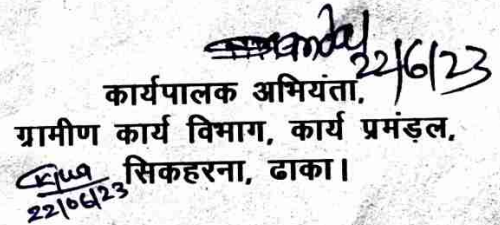 22/6/23
कार्यपालक अभियंता,
ग्रामीण कार्य विभाग, कार्य प्रमंड़ल,
सिकहरना, ढाका।
22/06/23